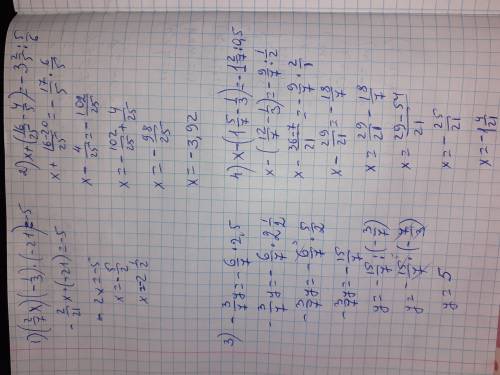 1) (2/7 x)·(-1/3)·(-21)=-5
- 2/21 x·(-21)=-5
- 2x=-5
x=5/2
x=2 1/2
2) x+(16/25 - 4/5)=-3 2/5 : 5/6
x + (16-20)/25 = - 17/5 · 6/5
x - 4/25 = - 102/25
x = - 102/25 + 4/25
x = - 98/25
x = -3,92
3) - 3/7 y = - 6/7 · 2,5
- 3/7 y = - 6/7 · 2 1/2
- 3/7 y = - 6/7 · 5/2
- 3/7 y = - 15/7
y = - 15/7 : (- 3/7)
y = - 15/7 · (- 7/3)
y = 5
4) x-(1 5/7 - 1/3)=-1 2/7 : 0,5
x - (12/7 - 1/3) = - 9/7 : 1/2
x - (36-7)/21 = - 9/7 · 2/1
x - 29/21 = - 18/7
x = 29/21 - 18/7
x = (29-54)/21
x = - 25/21
x = -1 4/21